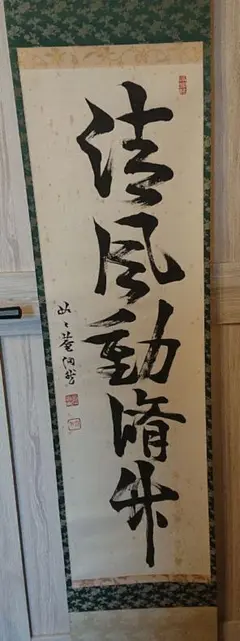 清風動脩竹
此々菴